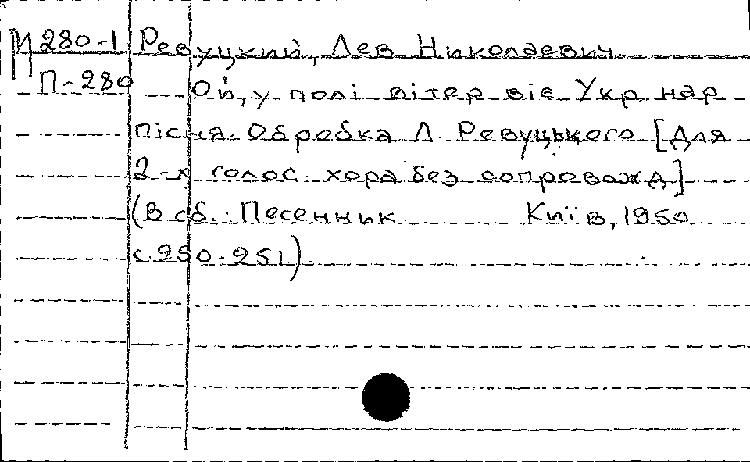 М 280-1 Ревуцкий, Лев Николаевич
П-280 Ой, у полі вітер віє Укр нар
пісня. Обробка Л. Ревуцького [Для
2-х голос. хора без сопровожд]
(В сб.: Песенник Київ, 1950
с. 250-251)